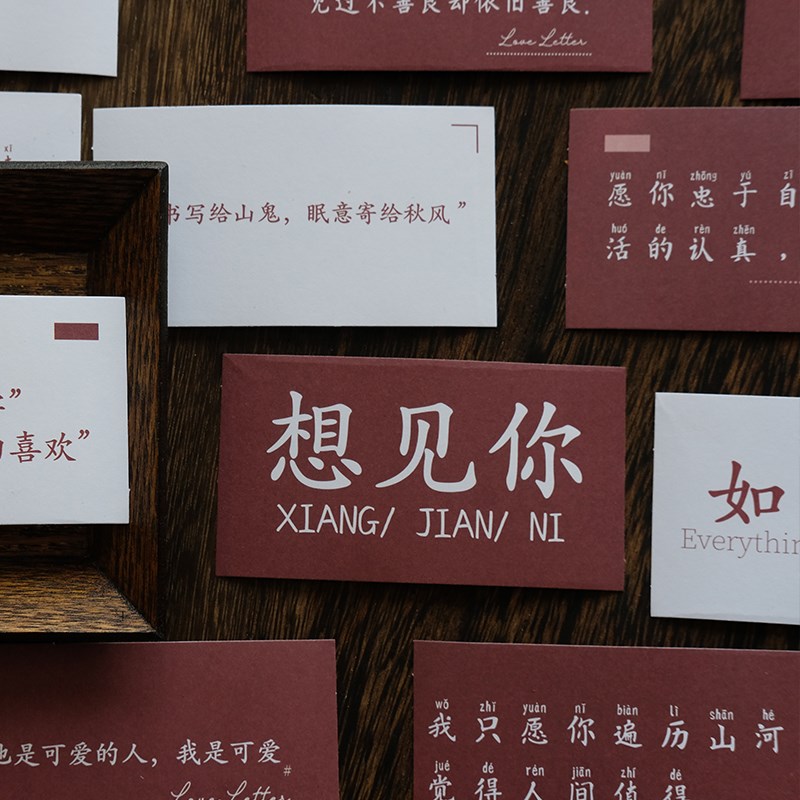 见过不善良却依旧善良.
Love Letter
xī
书写给山鬼，眠意寄给秋风”
yuàn nǐ zhōng yú zì
愿你忠于自
huó de rèn zhēn
活的认真，
”
喜欢”
想见你
XIANG/ JIAN/ NI
如
Everythin
是可爱的人，我是可爱
#
Love Letter
wǒ zhǐ yuàn nǐ biàn lì shān hé
我只愿你遍历山河
jué dé rén jiān zhí dé
觉得人间值得